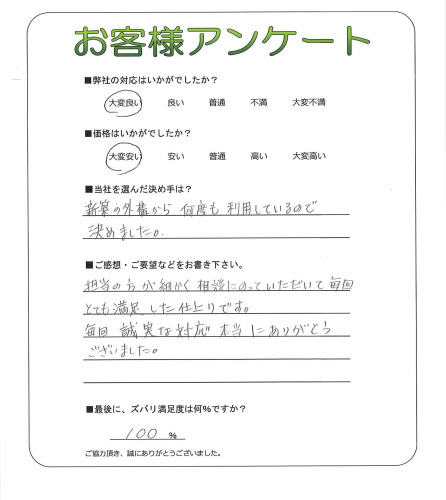 お客様アンケート
■弊社の対応はいかがでしたか？
大変良い 良い 普通 不満 大変不満
■価格はいかがでしたか？
大変安い 安い 普通 高い 大変高い
■当社を選んだ決め手は？
新築の外構から 何度も 利用しているので
決めました。
■ご感想・ご要望などをお書き下さい。
担当の方が細かく 相談にのっていただいて 毎回
とても満足 した仕上りです。
毎回 誠実な対応 本当に ありがとう
ございました。
■最後に、ズバリ満足度は何%ですか？
100 %
ご協力頂き、誠にありがとうございました。